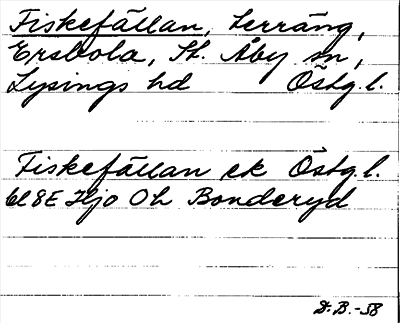 Fiskefällan, terräng,
Ersbola, St. Åby sn,
Lysings hd Östg.l.
Fiskefällan ek Östg.l.
8E Hjo Bonderyd
D.B.-58